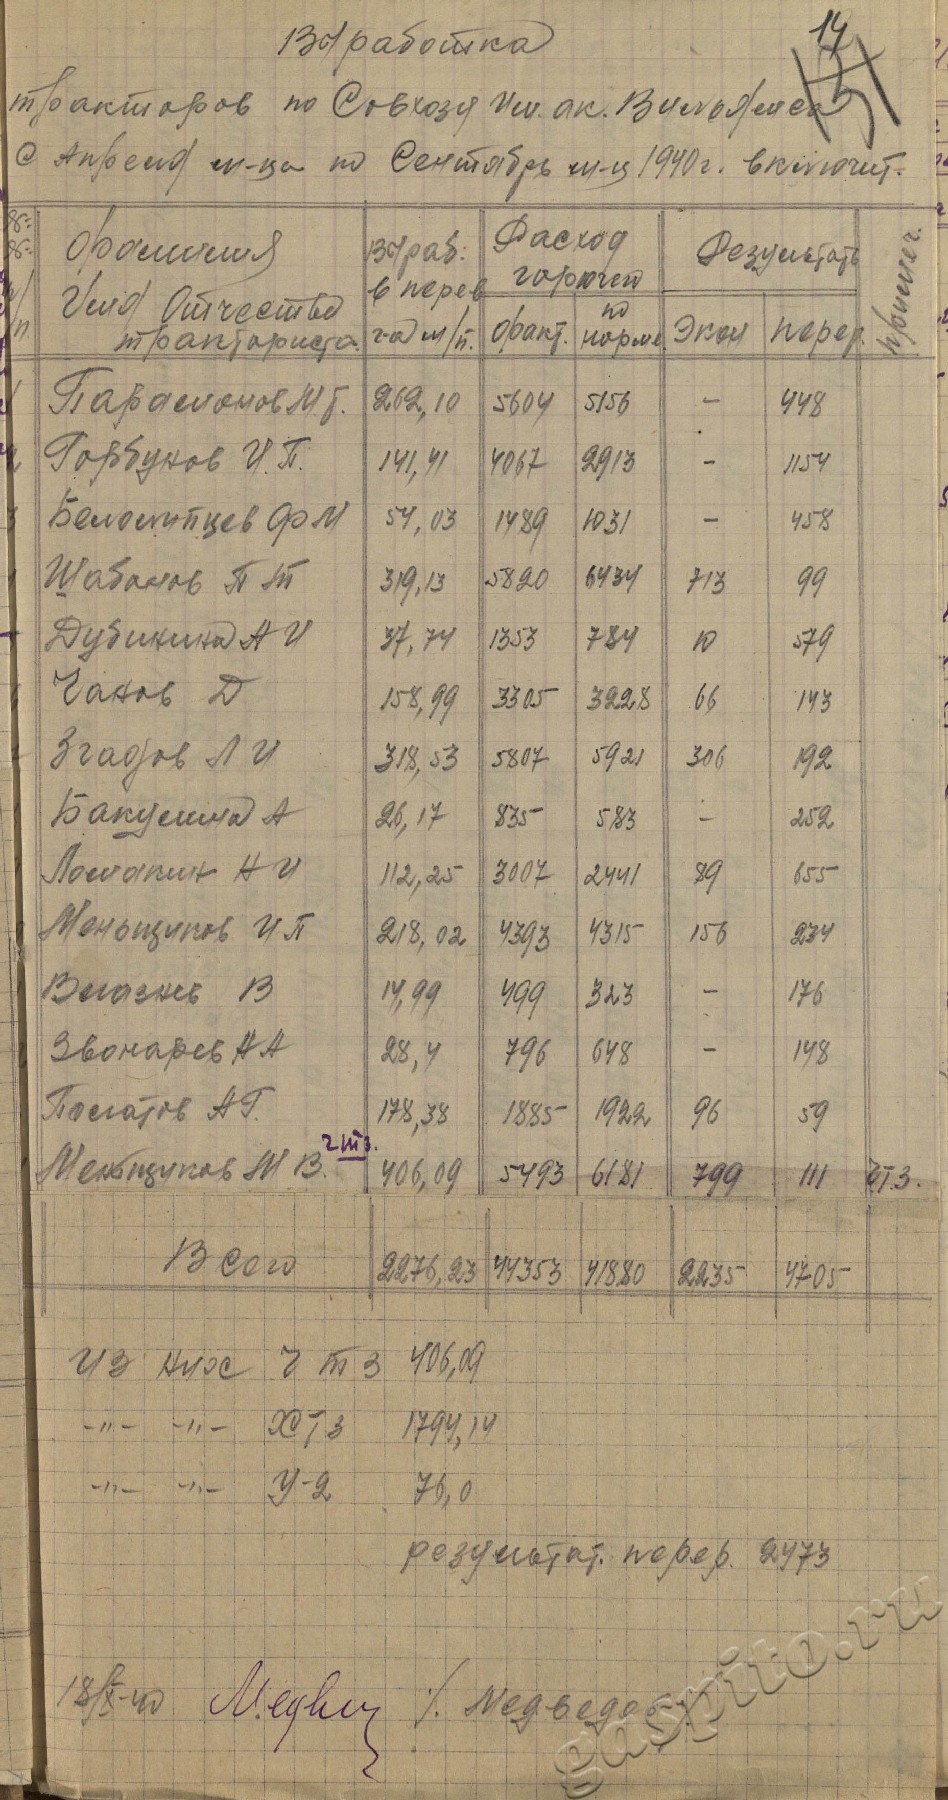 14
Выработка
тракторов по Совхозу Им. ак. Вильямса
с Апреля м-ца по Сентябрь м-ц 1940 г. включит.
Фамилия Имя Отчество тракториста. Выраб. в перев г-а м/п. Расход горючего Результаты Примеч.
факт. по норме. Экон перер.
Парамонов М Г. 262,10 5604 5156 – 448
Горбунов И. П. 141,41 4067 2913 – 1154
Беломытцев Ф М 54,03 1489 1031 – 458
Шабанов П Т 319,13 5820 6434 713 99
Дубинина А И 37,74 1353 784 10 579
Чанов Д 158,99 3305 3228 66 143
Згадов Л И 318,53 5807 5921 306 192
Бакулина А 26,17 835 583 – 252
Ломакин Н И 112,25 3007 2441 89 655
Меньщиков И П 218,02 4393 4315 156 234
Власнев В 14,99 499 323 – 176
Звонарев Н А 28,4 796 648 – 148
Полатов А Г. 178,38 1885 1922 96 59
Меньщиков М В. ЧТЗ. 406,09 5493 6181 799 111 ЧТЗ.
Всего 2276,23 44353 41880 2235 4705
Из них ЧТЗ 406,09
-"- -"- ХТЗ 1794,14
-"- -"- У-2 76,0
результат. перер. 2473
18/X-40 /. Медведев
gaspito.ru